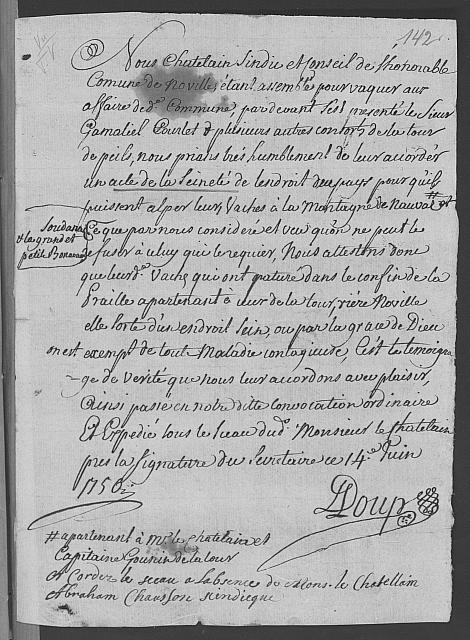 142
Nous Chatelain Sindic et Conseil de Lhonorable
Comune de Noville étant assemblés pour vaquer aux
affaire de d.e Commune, pardevant S'est présenté le Sieur
Gamaliel Courlet & plusieurs autres consorts de la tour
de peils, nous priants très humblement de leur accorder
un acte de la Seineté de lendroit du pays pour qu'ils
puissent alper leurs Vaches à la Montagne de Nauval #
Ce que par nous consideré et veu qu'on ne peut le
refuser à celuy qui le requier, Nous attestons donc
que leur d.e Vache qui ont paturé dans le confin de la
Praille apartenant à ceux de la tour, rière Noville
elle sorte d'un endroit Sein, ou par la grace de Dieu
on est exempt de toute Maladie contagieuse, C'est le temoigna
ge de Verité que nous leur accordons avec plaisir,
Ainsi passé en notre ditte Convocation ordinaire
Et Expedié sous le Sceau dud.t Monsieur le Chatelain
pres la Signature du Secretaire ce 14.e Juin
1750
Soudan
& la grand et
petite Bonaudon
DLoup
# apartenant à Mr. le Chatelain et
Capitaine Gonin de la tour
Cordez le Seau a labsence de le Chatellain
Abraham Chausson Scindicque